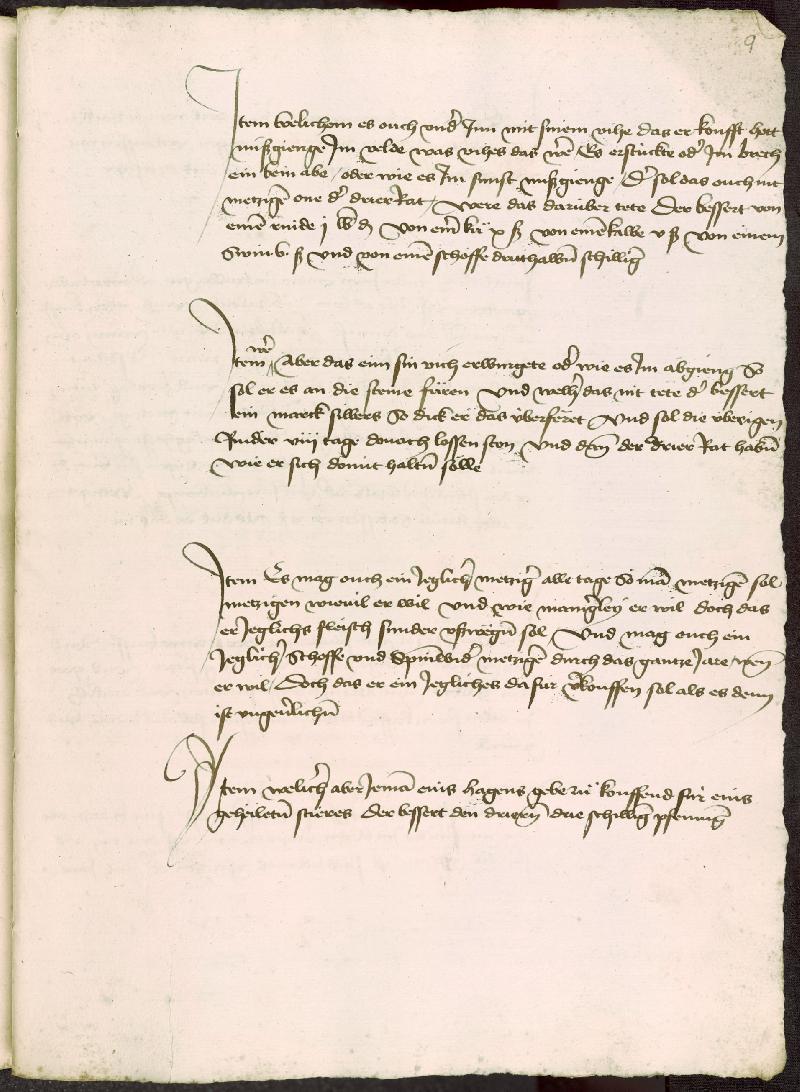 9
Item welichem es ouch vnd' Jnn mit sinem vihe das er koufft hett
mißgienge Jm velde was vihes das we' Es ersticke od' Jm brech
ein bein abe / oder wie es Jm sunst mißgienge / D' sol das ouch nit
metzige one d' drier Rat / were das darüber tete Der bessert von
eine rinde j lb d von eine ku x ß von eine kalbe v ß von einem
Swin v ß vnd von eine schoffe dritthalbn schillig
Item we' Aber das eim sin vich erwurgete od' wie es Jm abgieng So
sol er es an die steine füren vnd welh' das nit tete d' bessert
ein marck silbers So dick er das überferet Vnd sol die überigen
Rinder viij tage donoch lossen ston Vnd dan der drier Rat habn
wie er sich domit haltn sölle
Item Es mag ouch ein Jeglich' metzig' alle tage So ma metzige sol
metzigen wieuil er wil vnd wie manig'ley er wil doch das
er Jeglichs fleisch sunder vßwegn sol Vnd mag ouch ein
Jeglich' Schoffe vnd wid' metzige durch das gantze Jare wen
er wil / Doch das er ein Jegliches dafür v'kouffen sol als es denn
ist vngeu'lichn
Item welich' aber Jema eins hagens gebe ze kouffend für eins
geheiletn stieres der bessert den driern drie schillig pfennig